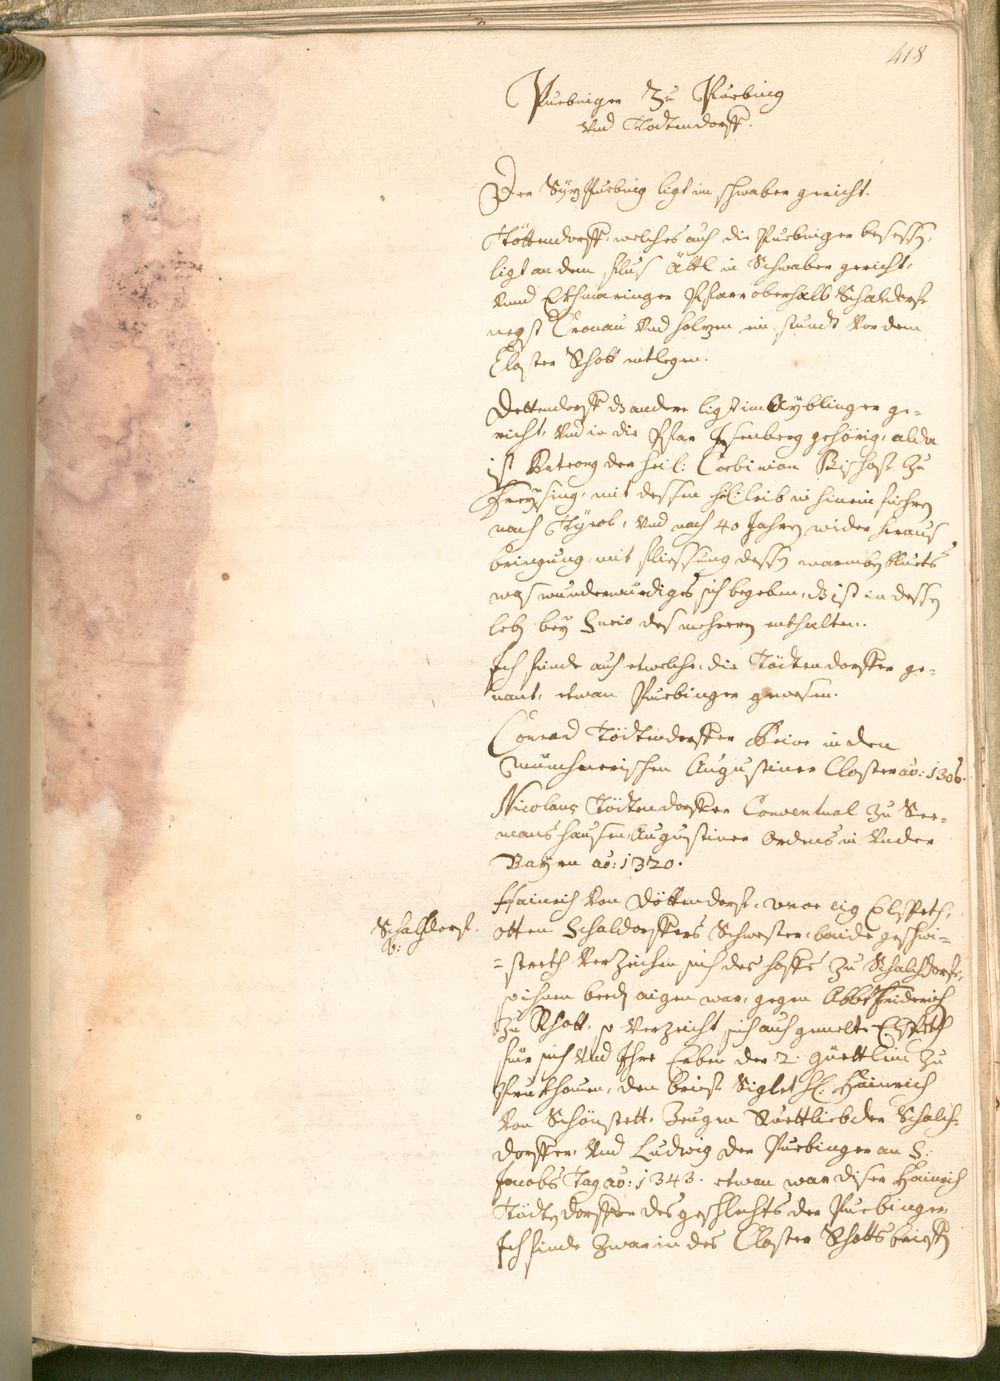 418
Puebinger Zu Puebing
Vnd Todtendorff.
Der Siz Puebing ligt im schwaber gericht.
Töttendorff, welches auch die Puebinger besessen,
ligt an dem flus Attl in Schwaber gericht,
Vnnd Ethmaringer Pfarr oberhalb Schaldorf
negst Cronau Vnd holzen ein stundt Von dem
Closter Rhott entlegen.
Dettendorff dz andere ligt im Ayblinger ge=
richt, Vnd in die Pfar Jrsenberg gehörig, alda
ist Patron der heil: Corbinian Bischoff Zu
Freysing, mit dessen heil: leib in hinein führen
nach Tÿrol, Vnd nach 40 Jahren wider heraus
bringung, mit fliessung dessen warmben bluets
was wunderwürdiges sich begeben, dz ist in dessen
leben bey Surio des mehrern enthalten.
Ich finde auch etwelche, die Tödtendorffer ge=
nant, etwan Puebinger gewesen.
Conrad Tödtendorffer Prior in dem
Münchnerischen Augustiner Closter ao: 1306.
Nicolaus Tödtendorffer Conventual Zu See=
manshausen Augustiner Ordens in Vnder
Bayrn ao: 1320.
Hainrich Von Döttendorf, Vxor eig Elspeth,
Schalchdorf.
otten Schaldorffers Schwester, baide geschwi=
=streth Verzeihen sich des hoffs Zu Schalchdorf,
so ihnen beeden aigen war, gegen Abbt Friderich
Zu Rhott, so Verzeicht sich auch gemelte Elspeth
für sich Vnd Ihre Erben der 2. güettlein Zu
Prukhouen, den brief Siglet H: Hainrich
Von Schönstett, Zeugen Ruettlieb der Schalch=
dorffer, Vnd Ludwig der Puebinger an S:
Jacobs Tag ao: 1343. etwan war diser Hainrich
Tödtendorffer des geschlechts der Puebinger,
Ich finde Zwar in des Closter Rhotts briefen